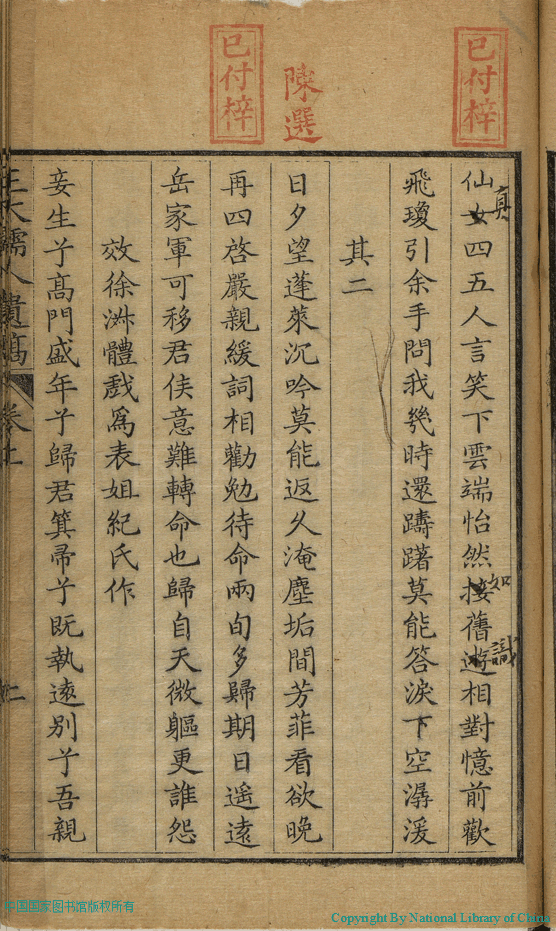 已付梓
陳選
已付梓
仙女四五人言笑下雲端怡然接舊遊相對憶前歡
真
如
識
飛瓊引余手問我幾時還躊躇莫能答淚下空潺湲
其二
日夕望蓬萊沉吟莫能返久淹塵垢間芳菲看欲晚
再四啓嚴親緩詞相勸勉待命兩旬多歸期日遥遠
岳家軍可移君侯意難轉命也歸自天微軀更誰怨
效徐淑體戲爲表姐紀氏作
妾生兮高門盛年兮歸君箕帚兮既執遠别兮吾親
王大孺人遺稿 卷上
中国国家图书馆版权所有
Copyright By National Library of China